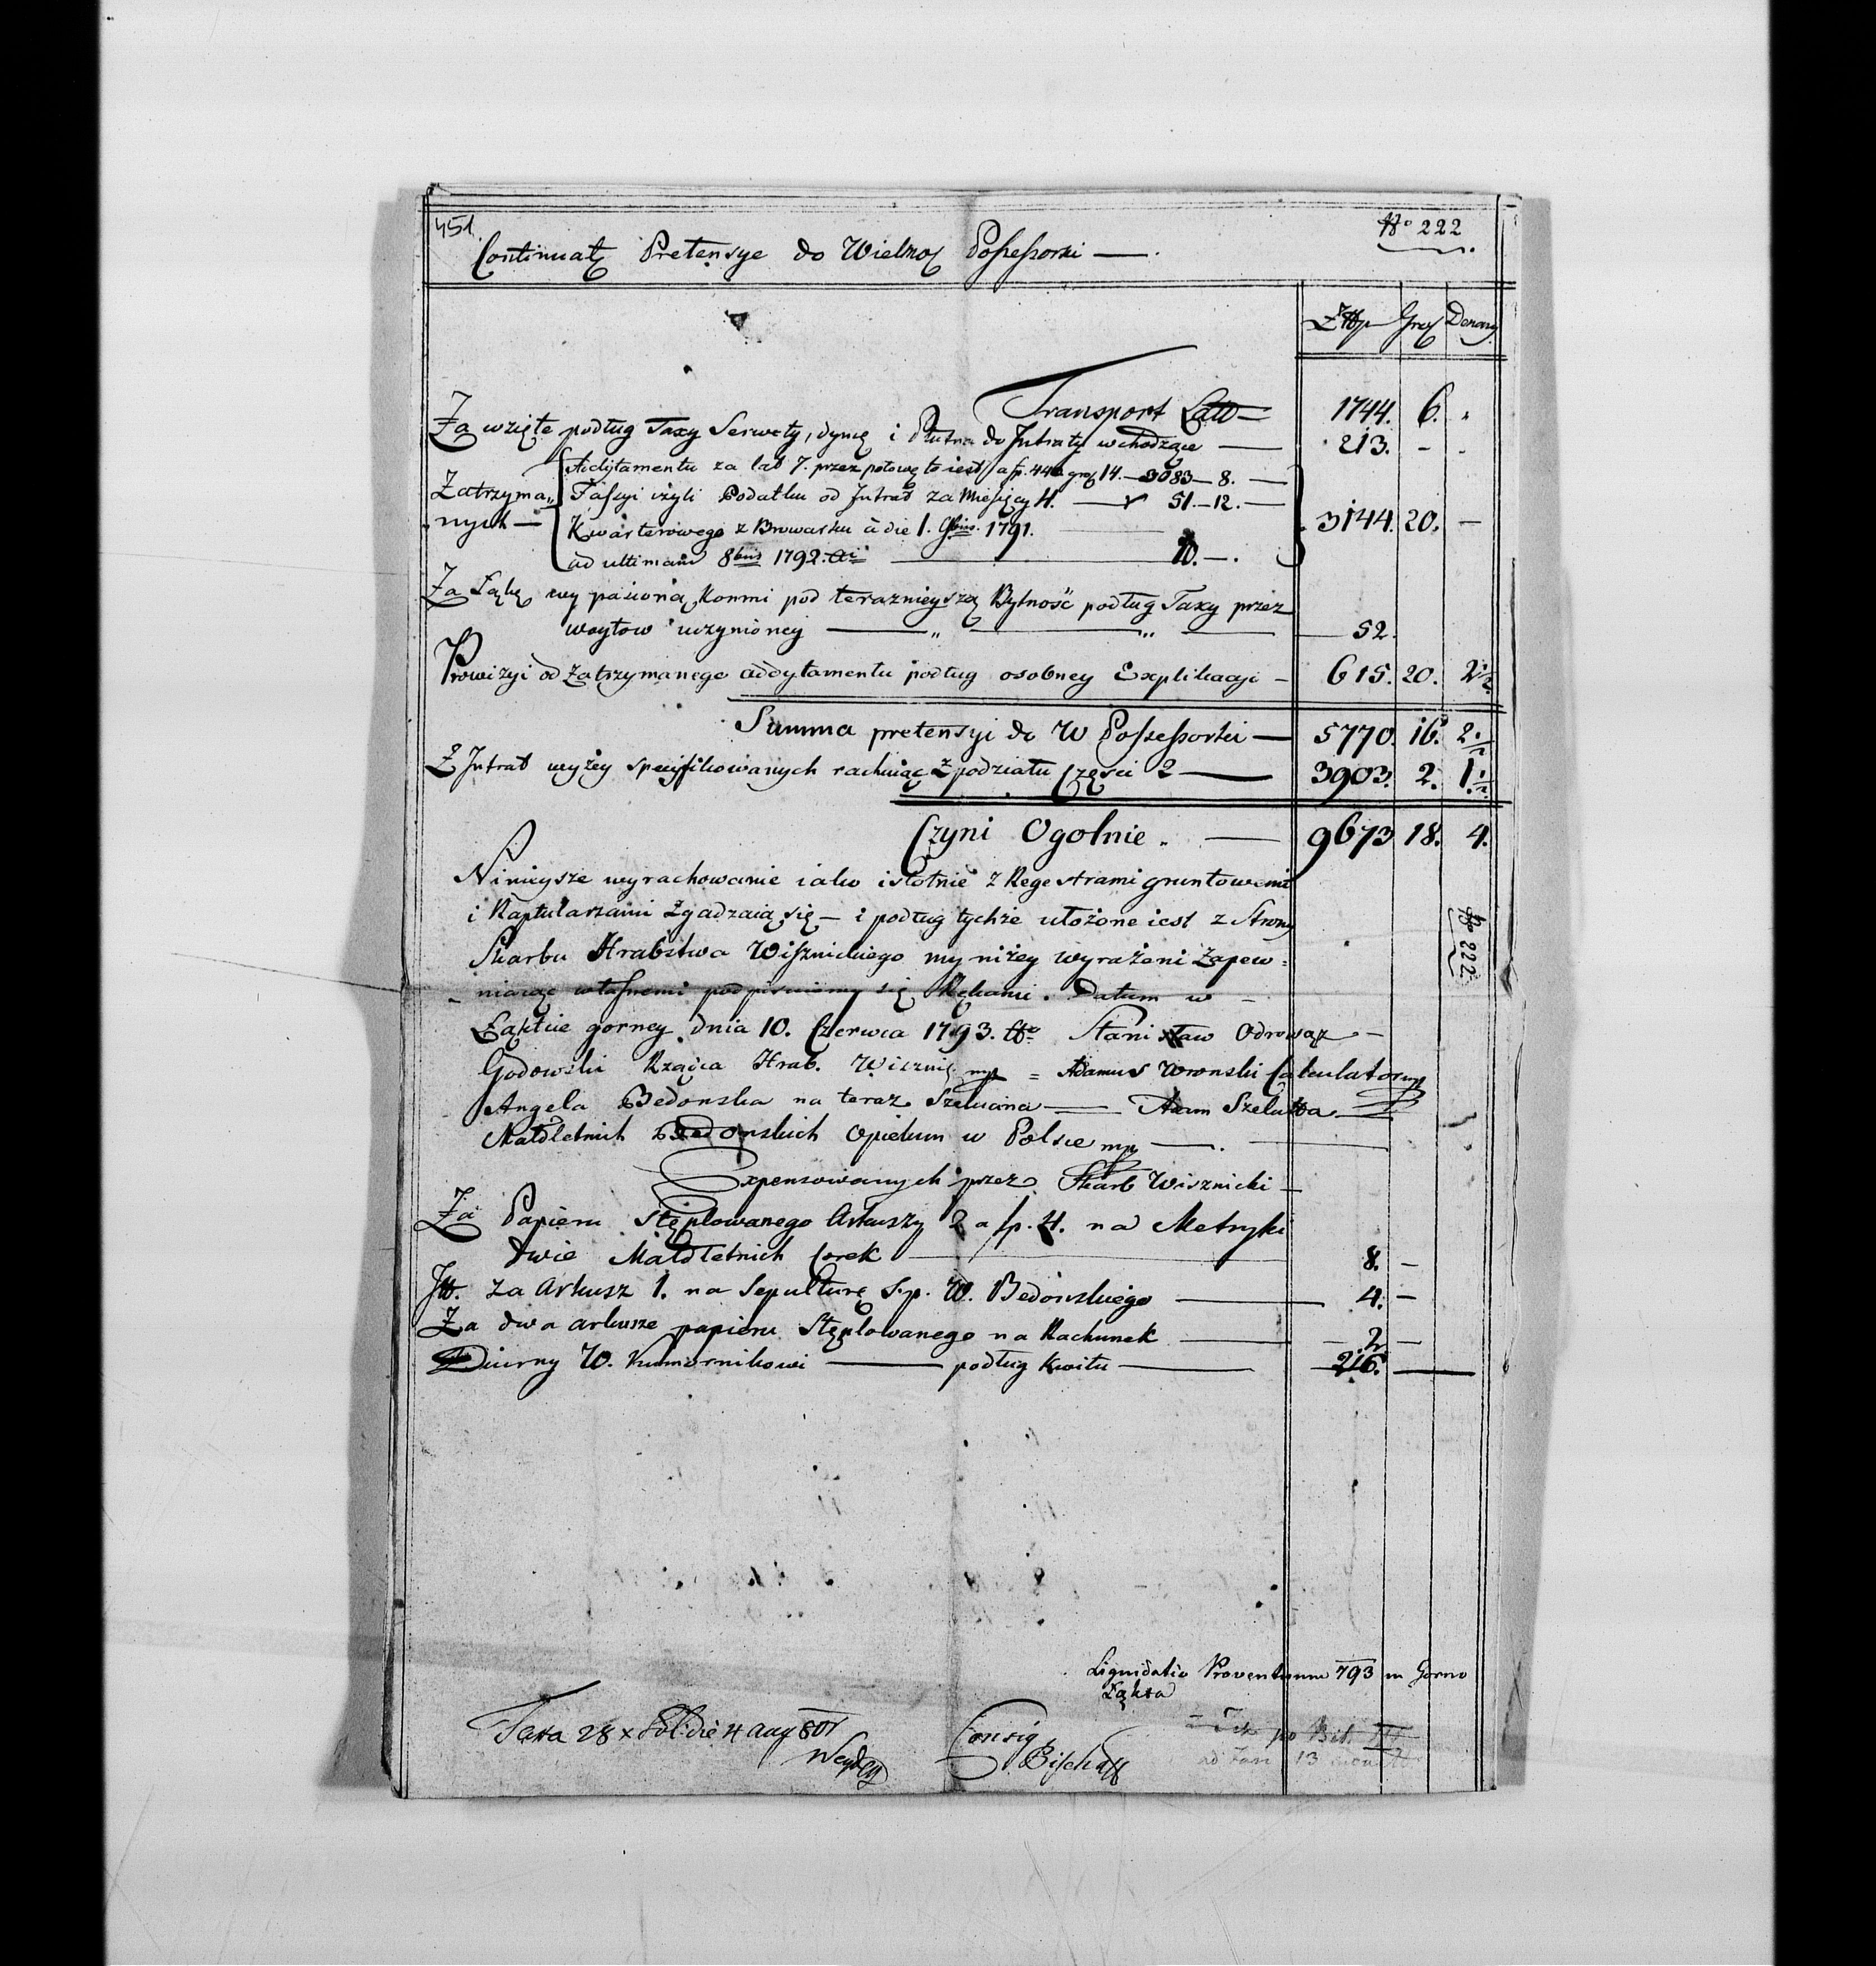 451.
No 222
Continuatę Pretensye do Wielnoy Possessorki —
Złłp Groy Denary
Transport Latto = 1744. 6. „
Za wzięte podług Taxy Serwety, dynię i Płutna do Jntraty wchodzące — 213. - -
Zatrzyma„
„nych —
Addytamentu za lat 7. przez połowę to iest / a fp. 440 groy 14. — 3083 — 8. —
Fassyi czyli Podatku od Jntrat za Miesięcy 4. — 51. — 12. —
3144. 20. —
Kwarterowego z Browarku à die 1. 9bris 1791.
ad ultimam 8bris 1792. ai — 10. —.
Za Łąkę wypasioną Konmi pod teraznieyszą Bytność podług Taxy przez
woytow uczynioney — „ — „ — 52.
Prowizyi od Zatrzymanego addytamentu podług osobney Explikacyi — 615. 20. 2½
Summa pretensyi do W Possessorki — 5770. 16. 2.½
Z Jntrat wyżey specyfikowanych rachuiąc z podziału części 2 — 3903. 2. 1.½
Czyni Ogolnie. — 9673 18. 4.
Ninieysze wyrachowanie iako istotnie z Regestrami gruntowemi
i Kaptularzami Zgadzaią się — i podług tychże ułożone iest z Strony
Skarbu Hrabstwa Wisznickiego my niżey wyrażeni Zapew=
niaiąc własnemi podpisuiemy się Rękami. Datum w —
Łąkcie gorney dnia 10. Czerwca 1793. Stanisław Odrowąż —
Godowski Rządca Hrab. Wiszni: mp = Adamus Wronski Calculator mp
Angela Bedonska na teraz Szeluana — Adam Szelutta
Małoletnich Bedonskich Opiekun w Polsce mp —.
No 222
Expensowanych przez Skarb Wisznicki —
Za Papieru Stęplowanego Arkuszy 2 a fp. 4. na Metryki
dwie Małoletnich Corek — 8. —
Jtt. za Arkusz 1. na Sepulturę S.p. W. Bedonskiego — 4. —
Za dwa arkusze papieru Stęplowanego na Rachunek — 2 —
Diurny W. Kumornikowi — podług Kwitu — 216. —
Liquidatio Proventuum 793 in Gorno
Łąkta
Taxa 28 x Sol: die 4 Aug 801
Consig
Bischaff